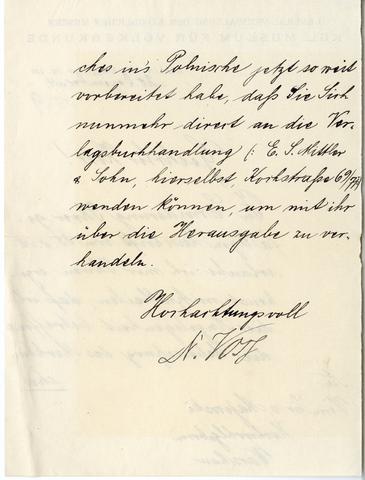 ches in's Polnische jetzt so weit
vorbereitet habe, daß Sie Sich
nunmehr direct an die Ver-
lagsbuchhandlung (: E. S. Mittler
& Sohn, hierselbst, Kochstraße 69/70)
wenden können, um mit ihr
über die Herausgabe zu ver-
handeln.
Hochachtungsvoll
KGL. MUSEUM FÜR VÖLKERKUNDE